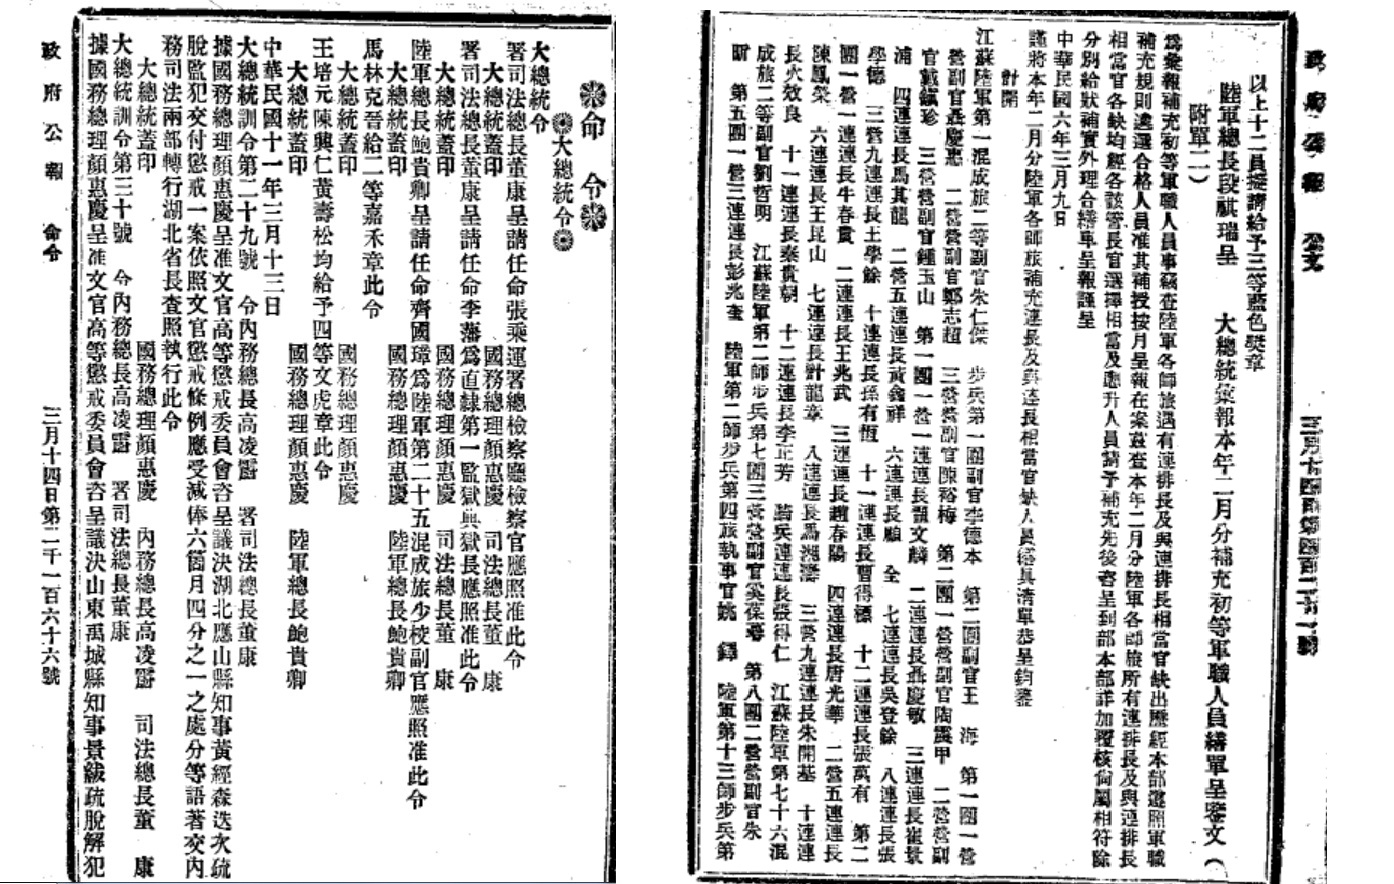 政府公報 公文 三月十四日第四百二十一號
以上十二員擬請給予三等藍色獎章
陸軍總長段祺瑞呈 大總統彙報本年二月分補充初等軍職人員繕單呈鑒文（
附單二）
為彙報補充初等軍職人員事竊查陸軍各師旅遇有連排長及與連排長相當官缺出歷經本部遵照軍職
補充規則遴選合格人員准其補授按月呈報在案茲查本年二月分陸軍各師旅所有連排長及與連排長
相當官各缺均經各該管長官選擇相當及應升人員請予補充先後咨呈到部本部詳加覆核尚屬相符除
分別給狀補實外理合繕單呈報謹呈
中華民國六年三月九日
謹將本年二月分陸軍各師旅補充連長及與連長相當官缺人員繕具清單恭呈鈞鑒
計開
江蘇陸軍第一混成旅二等副官朱仁傑 步兵第一團副官李德本 第二團副官王 海 第一團一營
營副官聶慶惠 二營營副官鄭志超 三營營副官陳裕梅 第二團一營營副官陶震甲 二營營副
官戴鎮珍 三營營副官鍾玉山 第一團一營一連連長顏文麟 二連連長聶慶敏 三連連長崔景
浦 四連連長馬其龍 二營五連連長黃鑫祥 六連連長顧 全 七連連長吳登餘 八連連長張
學德 三營九連連長王學餘 十連連長孫有恆 十一連連長曹得標 十二連連長張萬有 第二
團一營一連連長牛春貴 二連連長王兆武 三連連長趙春陽 四連連長唐光華 二營五連連長
陳鳳榮 六連連長王昆山 七連連長計龍章 八連連長馬湘濤 三營九連連長朱開基 十連連
長火效良 十一連連長秦貴朝 十二連連長李正芳 騎兵連連長張得仁 江蘇陸軍第七十六混
成旅二等副官劉哲明 江蘇陸軍第二師步兵第七團三營營副官葉葆 第八團二營營副官朱
昕 第五團一營三連連長彭兆奎 陸軍第二師步兵第四旅執事官姚 鐸 陸軍第十三師步兵第
命令
大總統令
大總統令
署司法總長董康呈請任命張乘運署總檢察廳檢察官應照准此令
大總統蓋印 國務總理顏惠慶 司法總長董 康
署司法總長董康呈請任命李藩為直隸第一監獄典獄長應照准此令
大總統蓋印 國務總理顏惠慶 司法總長董 康
陸軍總長鮑貴卿呈請任命齊國璋為陸軍第二十五混成旅少校副官應照准此令
大總統蓋印 國務總理顏惠慶 陸軍總長鮑貴卿
馬林克晉給二等嘉禾章此令
大總統蓋印 國務總理顏惠慶
王培元陳興仁黃壽松均給予四等文虎章此令
大總統蓋印 國務總理顏惠慶 陸軍總長鮑貴卿
中華民國十一年三月十三日
大總統訓令第二十九號 令內務總長高凌霨 署司法總長董康
據國務總理顏惠慶呈准文官高等懲戒委員會咨呈議決湖北應山縣知事黃經森迭次疏
脫監犯交付懲戒一案依照文官懲戒條例應受減俸六箇月四分之一之處分等語著交內
務司法兩部轉行湖北省長查照執行此令
大總統蓋印 國務總理顏惠慶 內務總長高凌霨 司法總長董 康
大總統訓令第三十號 令內務總長高凌霨 署司法總長董康
據國務總理顏惠慶呈准文官高等懲戒委員會咨呈議決山東禹城縣知事景級疏脫解犯
政府公報 命令 三月十四日第二千一百六十六號